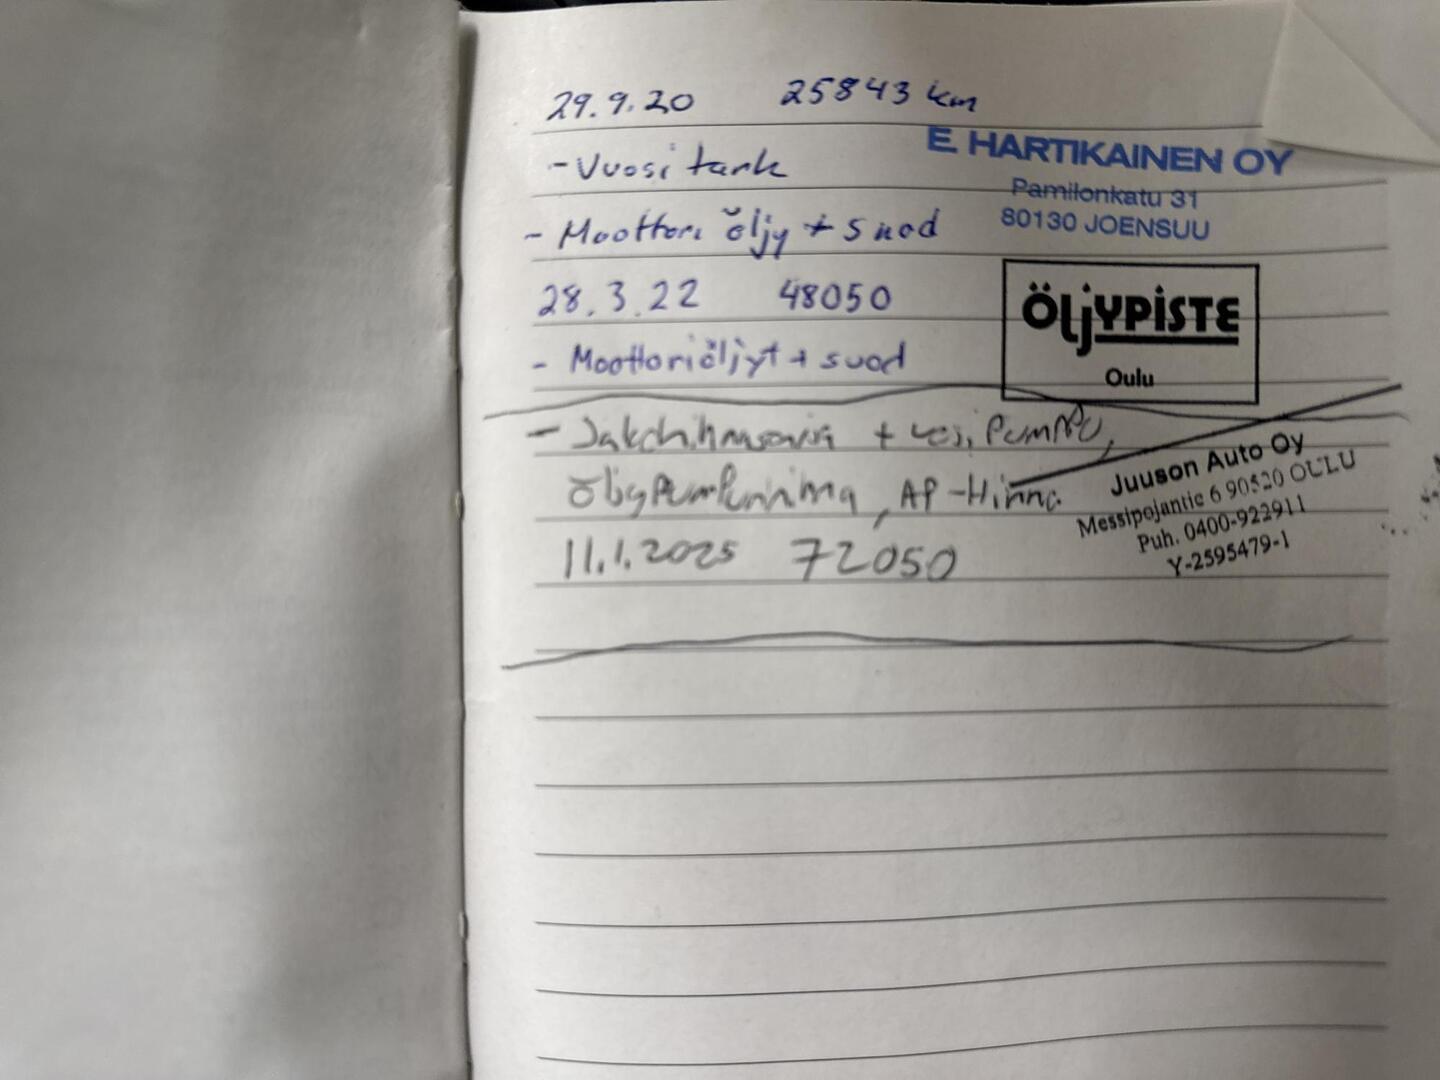 29.9.20 25843 km
E HARTIKAINEN OY
- Vuosi tark
Pamilonkatu 31
80130 JOENSUU
- Moottori öljy + suod
28.3.22 48050
ÖljYPiSTE
Oulu
- Moottoriöljyt + suod
- + vesi Pumppu,
, AP-Hihna
Juuson Auto Oy
Messipojantie 6 90520 OULU
Puh. 0400-922911
Y-2595479-1
11.1.2025 72050